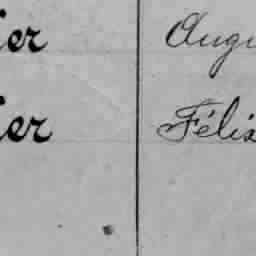 ier Augu
ier Félix